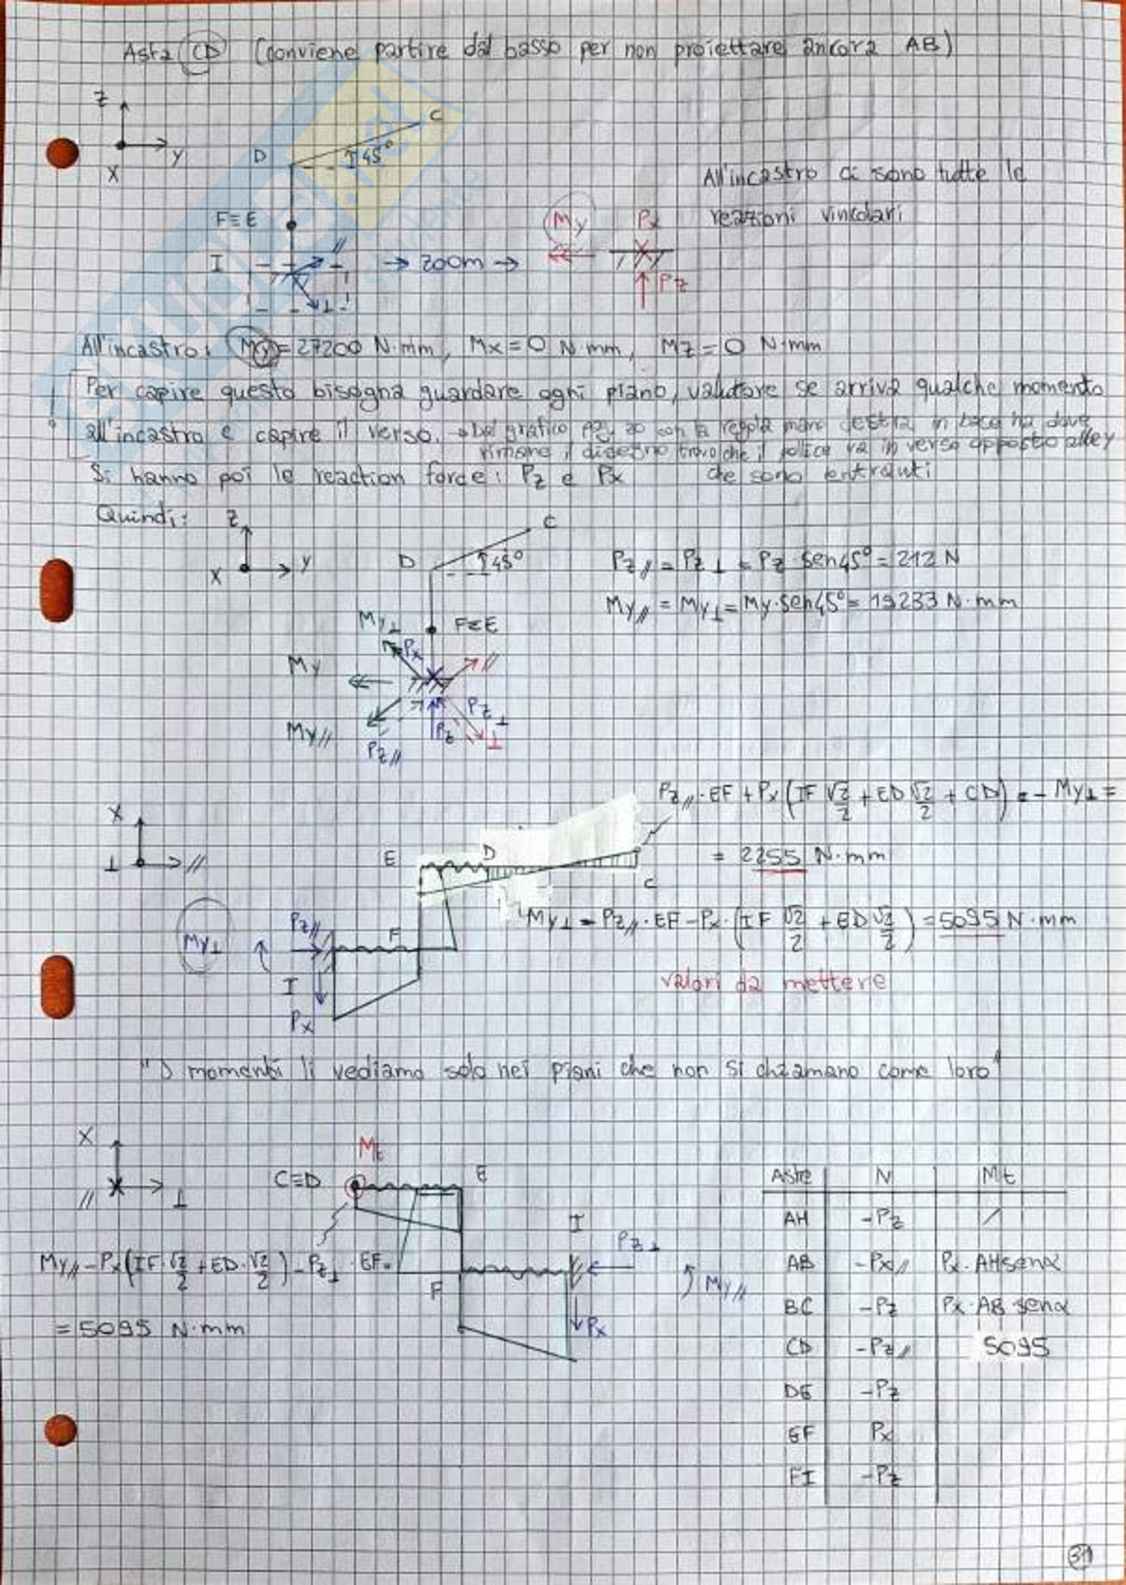 Asta CD (conviene partire dal basso per non proiettare ancora AB)
Z
Y
X
D
C
45°
F≡E
I
//
⊥
→ zoom →
My
Px
Pz
All'incastro ci sono tutte le
reazioni vincolari
All'incastro: My = 27200 N·mm, Mx = 0 N·mm, Mz = 0 N·mm
Per capire questo bisogna guardare ogni piano, valutare se arriva qualche momento
all'incastro e capire il verso. Dal grafico con la regola mano destra in base ha dove
rimane il disegno trovo che il pollice va in verso opposto alle y
Si hanno poi le reaction force: Pz e Px
che sono entranti
Quindi:
Z
X
Y
D
C
45°
F≡E
Pz// = Pz⊥ = Pz·sen45° = 212 N
My// = My⊥ = My·sen45° = 19233 N·mm
My⊥
Px
My
//
My//
Pz//
Pz
Pz⊥
⊥
Pz//·EF + Px(IF √2/2 + ED √2/2 + CD) = - My⊥ =
= 2255 N·mm
X
⊥
//
E
D
C
My⊥ - Pz//·EF - Px·(IF √2/2 + ED √2/2) = 5095 N·mm
My⊥
Pz//
F
I
Px
valori da mettere
"I momenti li vediamo solo nei piani che non si chiamano come loro"
X
//
⊥
Mt
C≡D
E
I
Pz⊥
F
Px
My//
My// - Px(IF·√2/2 + ED·√2/2) - Pz⊥·EF =
= 5095 N·mm
Aste N Mt
AH -Pz /
AB -Px// Px·AHsenα
BC -Pz Px·AB senα
CD -Pz// 5095
DE -Pz
EF Px
FI -Pz
31